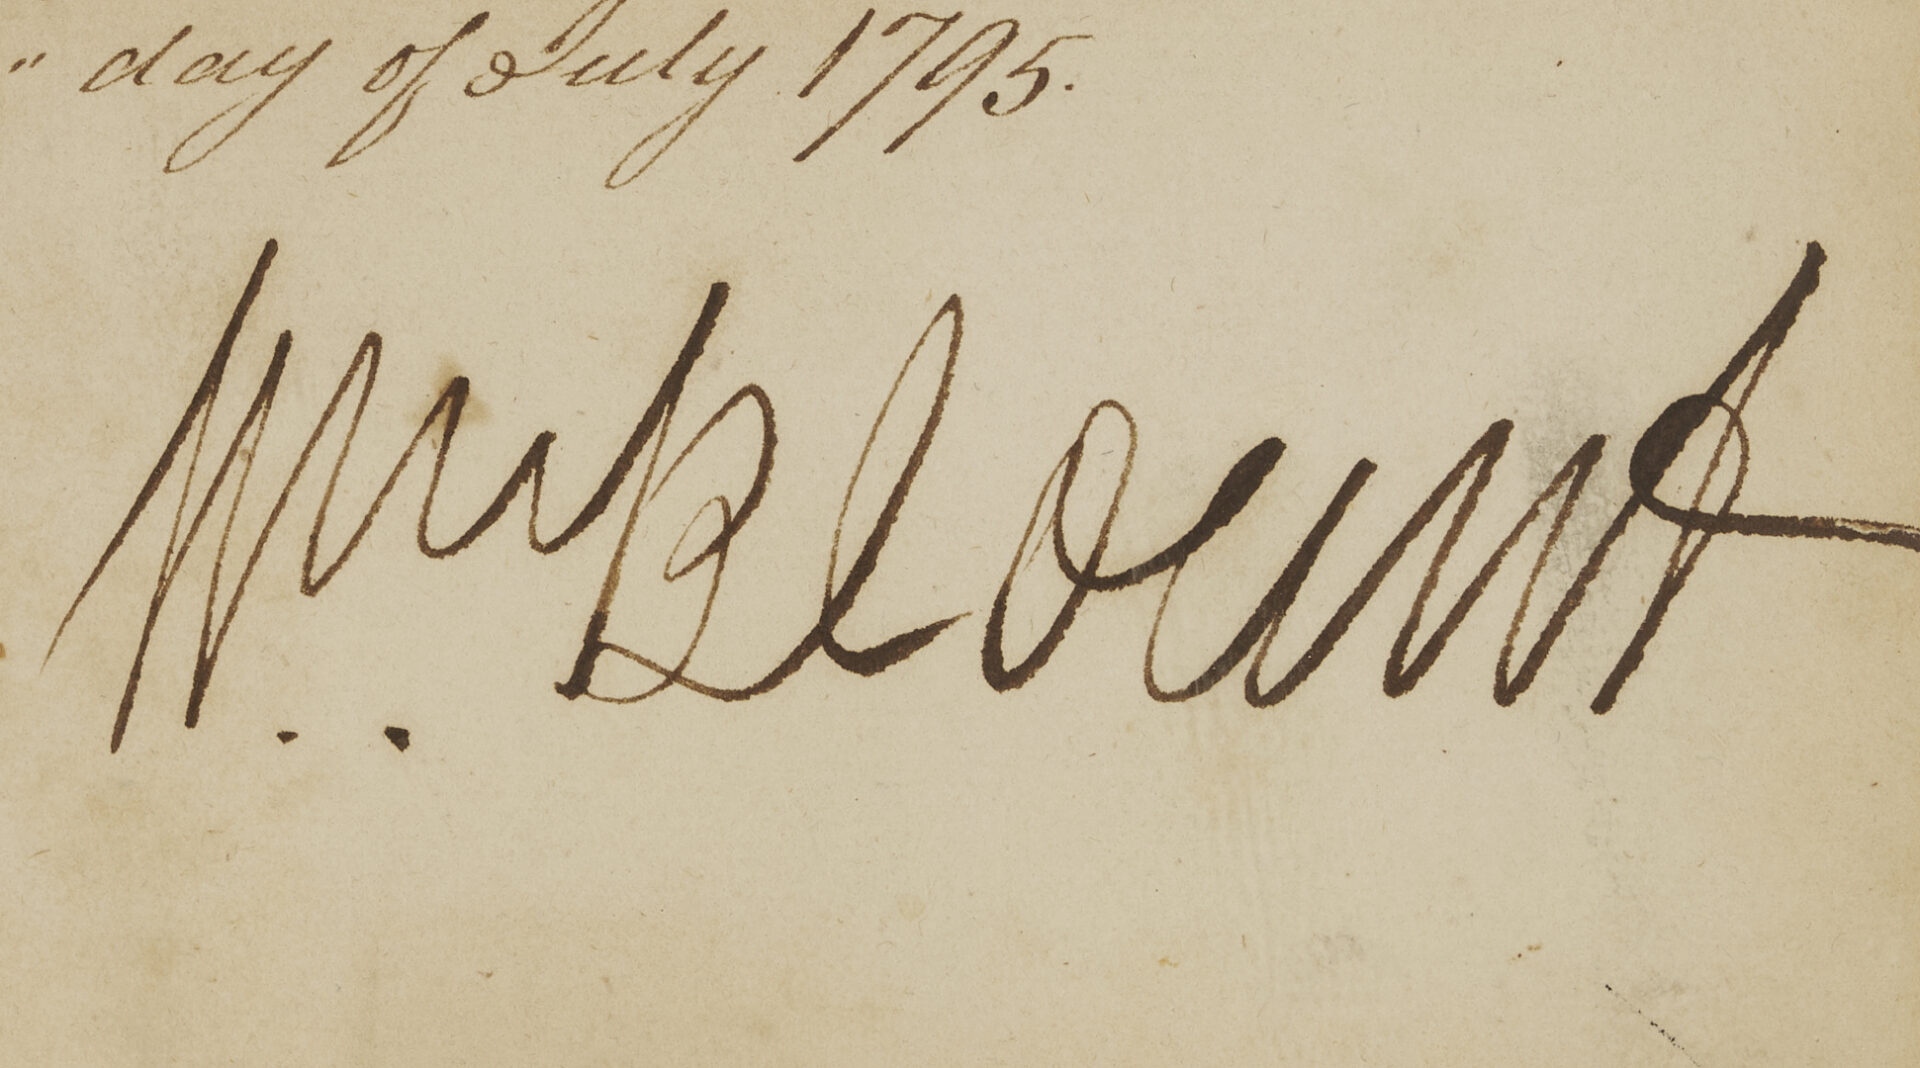 " day of July 1795.
Wm.. Blount